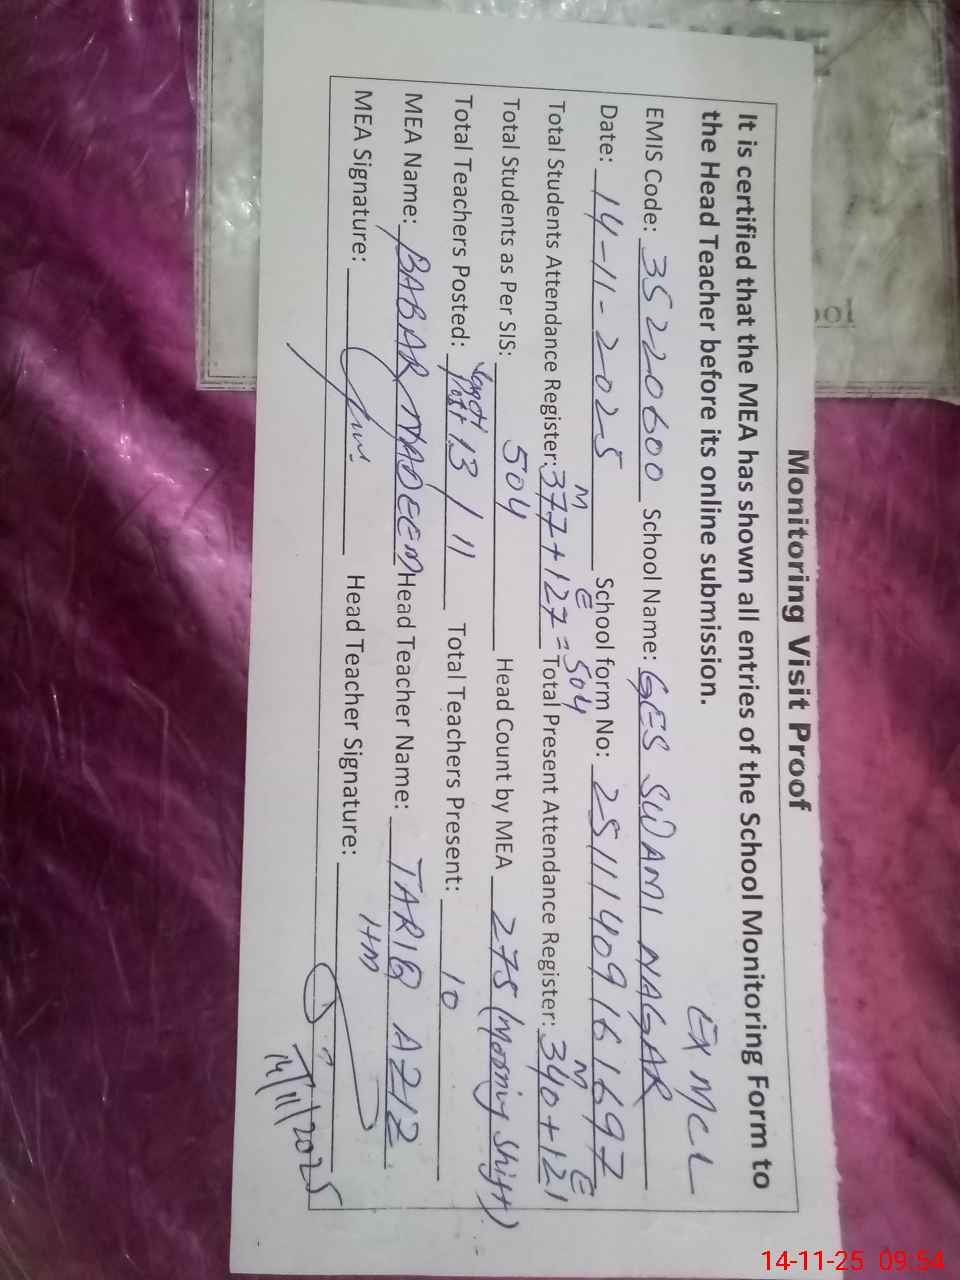 Monitoring Visit Proof
It is certified that the MEA has shown all entries of the School Monitoring Form to
the Head Teacher before its online submission.
EX MCL
EMIS Code: 35220600 School Name: GES SWAMI NAGAR
Date: 14-11-2025 School form No: 251114091616197
M E M E
Total Students Attendance Register: 377+127=504 Total Present Attendance Register: 340+121
Total Students as Per SIS: 504 Head Count by MEA 275 (Morning Shift)
Total Teachers Posted: Sanct Post 13/11 Total Teachers Present: 10
MEA Name: BABAR NADEEM Head Teacher Name: TARIQ AZIZ
MEA Signature: Head Teacher Signature: HM
14/11/2025
14-11-25 09:54